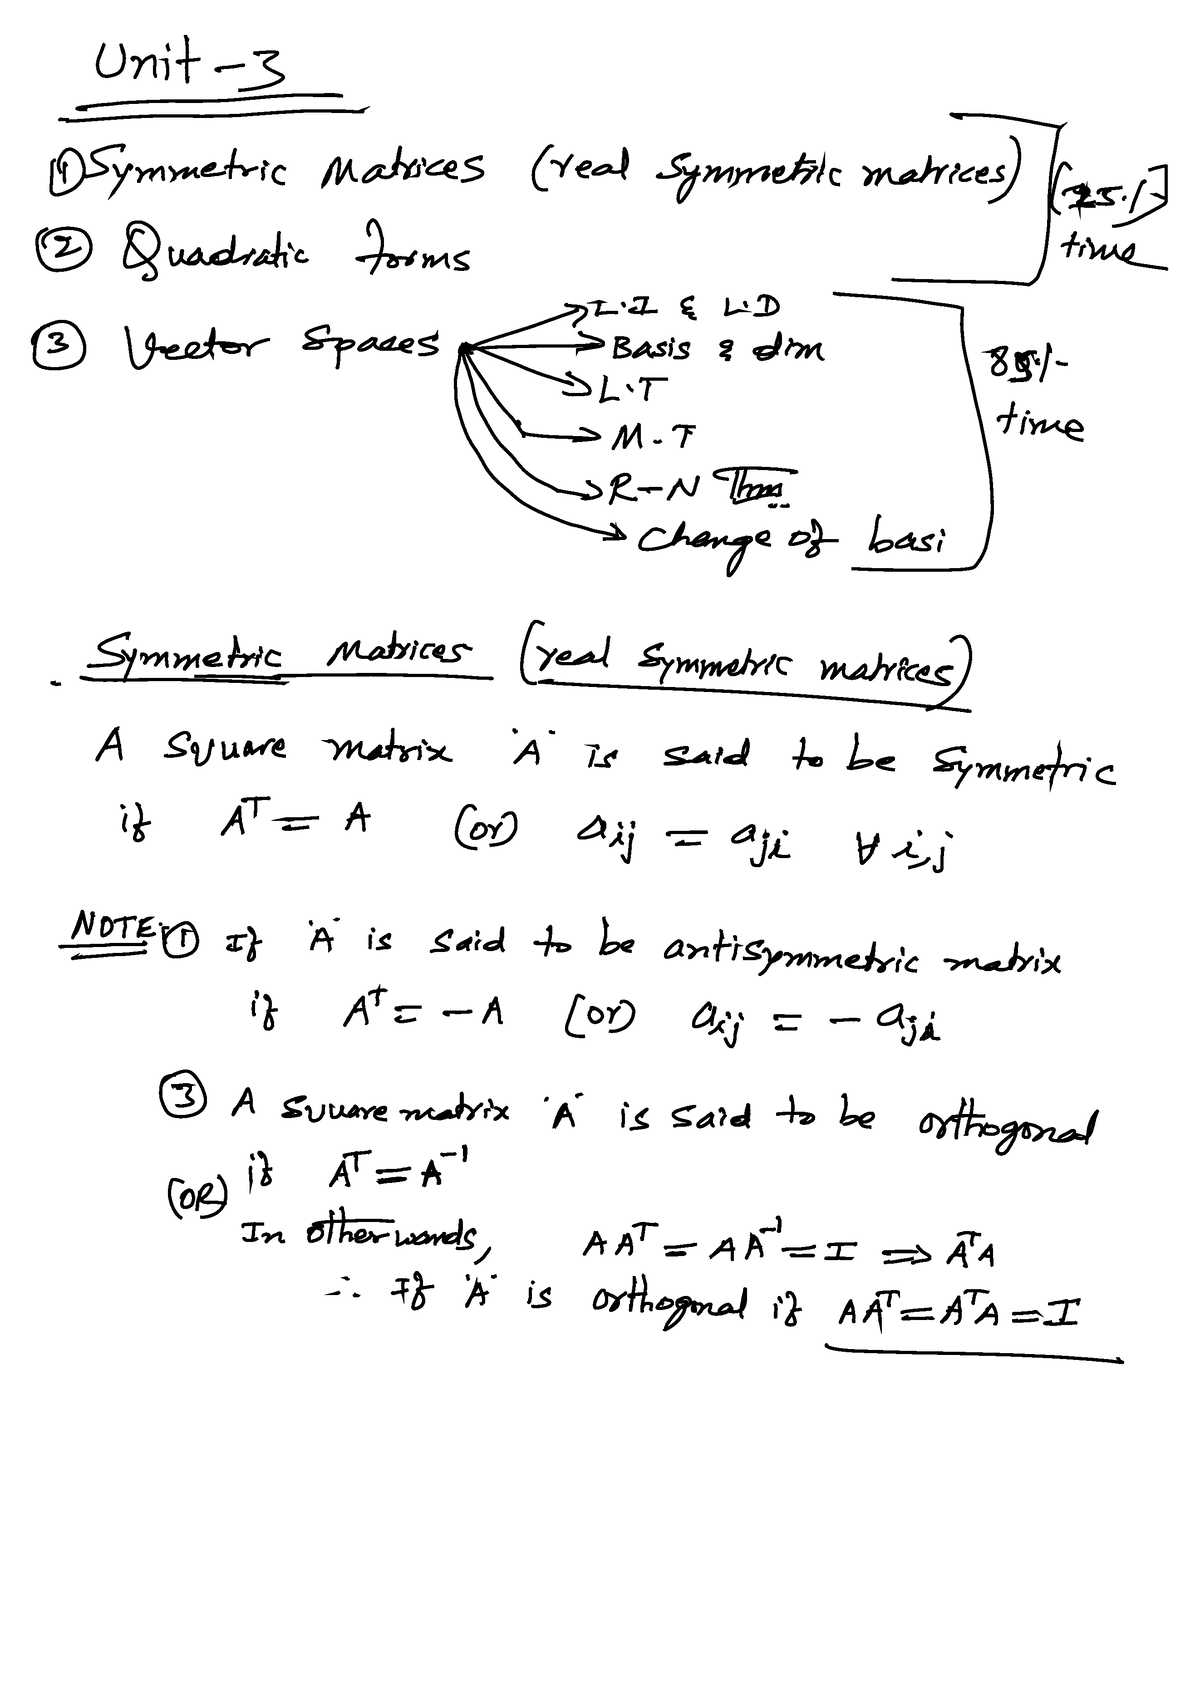 Unit-3
① Symmetric Matrices (real symmetric matrices)
time
② Quadratic forms
③ Vector Spaces
L.I & L.D
Basis & dim
L.T
M-T
R-N Thm
Change of basi
time
Symmetric Matrices (real symmetric matrices)
A square matrix 'A' is said to be symmetric
if Aᵀ = A (or) aij = aji ∀ i,j
NOTE: ① If 'A' is said to be antisymmetric matrix
if Aᵀ = -A (or) aij = -aji
③ A square matrix 'A' is said to be orthogonal
(OR) if Aᵀ = A⁻¹
In other words, AAᵀ = AA⁻¹ = I ⇒ AᵀA
∴ If 'A' is orthogonal if AAᵀ = AᵀA = I